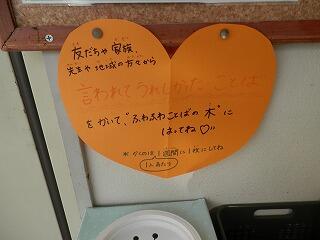 友だちや家族、
先生や地域の方々から
言われてうれしかったことば
をかいて、"ふわふわことばの木"に
はってね♡
※かくのは1週間に1枚にしてね
1人あたり